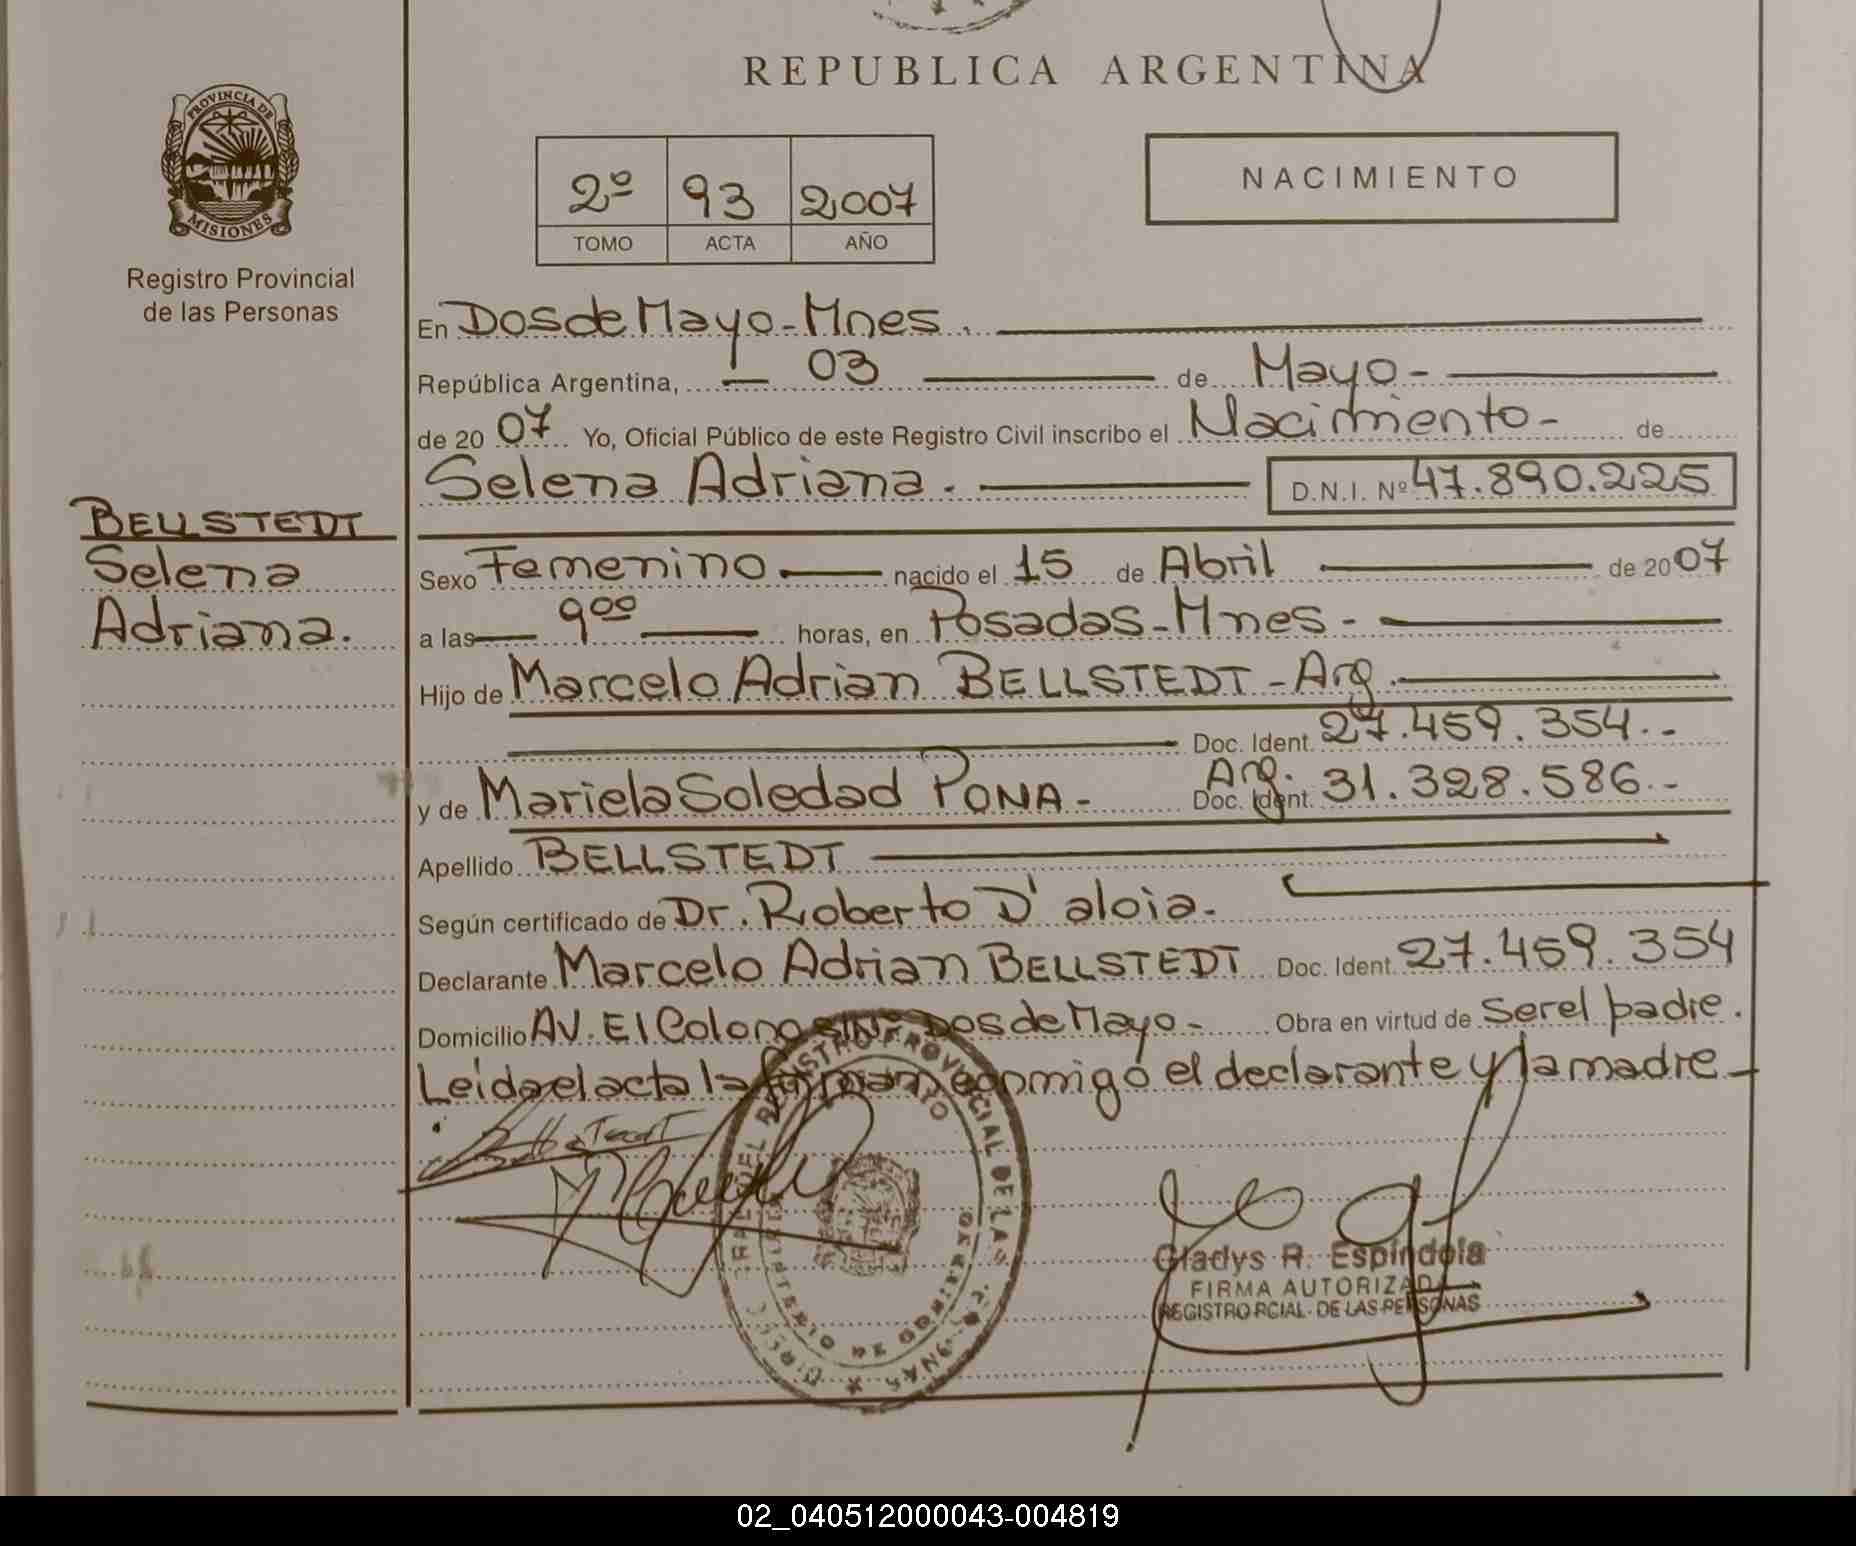 REPUBLICA ARGENTINA
PROVINCIA DE
MISIONES
Registro Provincial
de las Personas
2º 93 2007
TOMO ACTA AÑO
NACIMIENTO
En Dos de Mayo - Mnes.
República Argentina, 03 de Mayo -
de 2007 Yo, Oficial Público de este Registro Civil inscribo el Nacimiento - de
Selena Adriana. D.N.I. Nº 47.890.225
BELLSTEDT
Selena
Adriana.
Sexo Femenino nacido el 15 de Abril de 2007
a las 9⁰⁰ horas, en Posadas - Mnes -
Hijo de Marcelo Adrian BELLSTEDT - Arg.
Doc. Ident. 27.459.354.-
y de Mariela Soledad PONA - Arg. Doc. Ident. 31.328.586.-
Apellido BELLSTEDT
Según certificado de Dr. Roberto D'aloia.
Declarante Marcelo Adrian BELLSTEDT Doc. Ident. 27.459.354
Domicilio AV. El Colono S/Nº Dos de Mayo - Obra en virtud de Ser el padre.
Leida el acta la firman conmigo el declarante y la madre -
Gladys R. Espindola
FIRMA AUTORIZADA
REGISTRO PCIAL. DE LAS PERSONAS
02_040512000043-004819